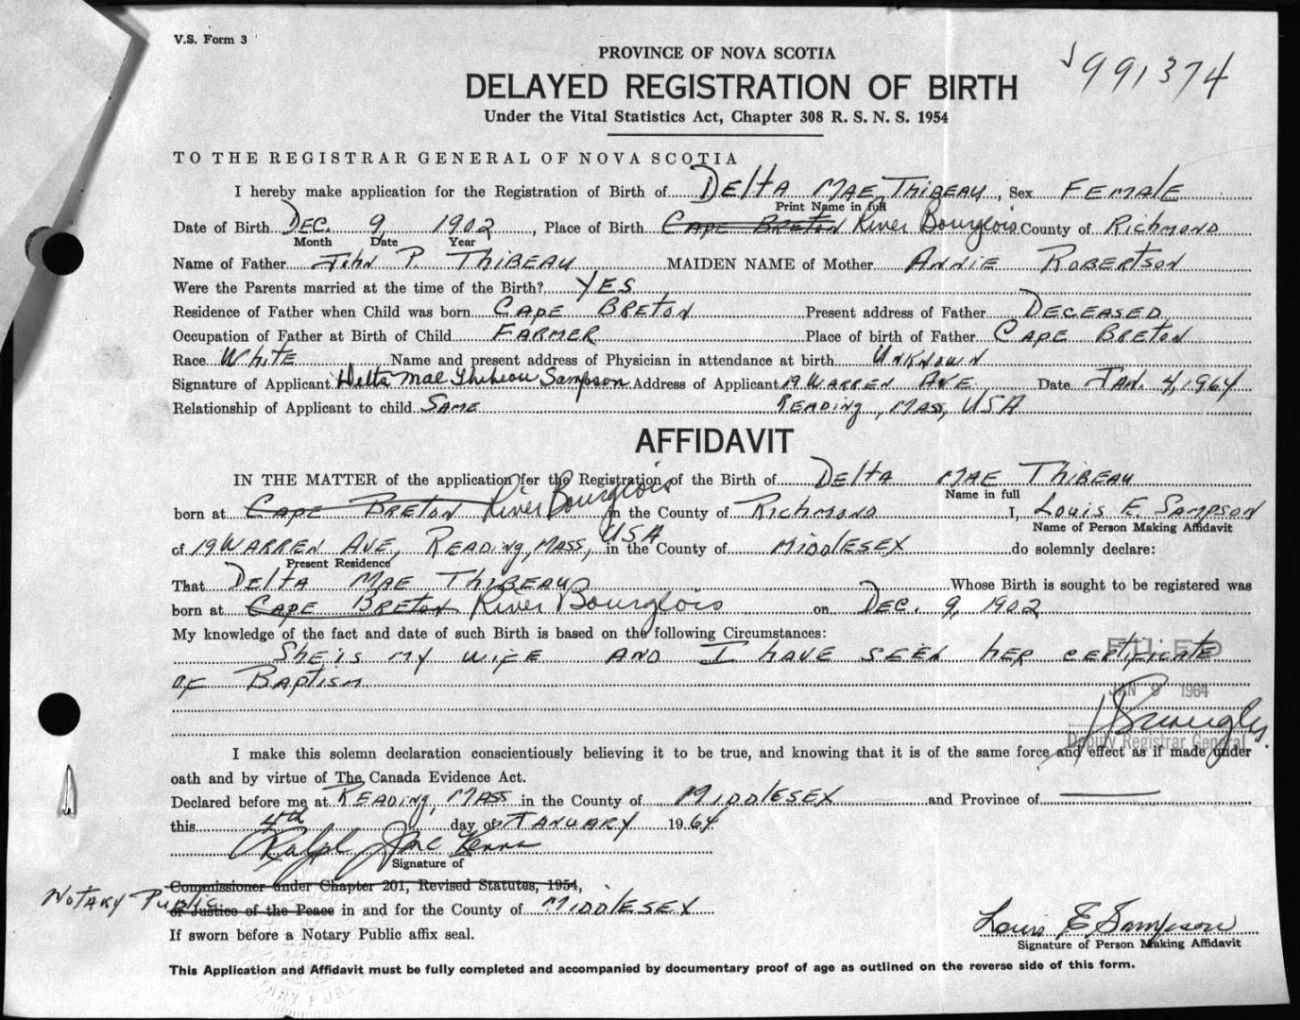 V.S. Form 3
PROVINCE OF NOVA SCOTIA
991374
DELAYED REGISTRATION OF BIRTH
Under the Vital Statistics Act, Chapter 308 R. S. N. S. 1954
TO THE REGISTRAR GENERAL OF NOVA SCOTIA
I hereby make application for the Registration of Birth of Delta Mae Thibeau, Sex Female
Print Name in full
Date of Birth Dec. 9, 1902, Place of Birth Cape Breton River Bourgeois County of Richmond
Month Date Year
Name of Father John P. Thibeau MAIDEN NAME of Mother Annie Robertson
Were the Parents married at the time of the Birth? Yes
Residence of Father when Child was born Cape Breton Present address of Father Deceased
Occupation of Father at Birth of Child Farmer Place of birth of Father Cape Breton
Race White Name and present address of Physician in attendance at birth Unknown
Signature of Applicant Delta Mae Thibeau Sampson Address of Applicant 19 Warren Ave Date Jan. 4, 1964
Relationship of Applicant to child Same Reading, Mass, USA
AFFIDAVIT
IN THE MATTER of the application for the Registration of the Birth of Delta Mae Thibeau
Name in full
born at Cape Breton River Bourgeois in the County of Richmond I, Louis E. Sampson
Name of Person Making Affidavit
of 19 Warren Ave, Reading, Mass, USA in the County of Middlesex do solemnly declare:
Present Residence
That Delta Mae Thibeau Whose Birth is sought to be registered was
born at Cape Breton River Bourgeois on Dec. 9, 1902
My knowledge of the fact and date of such Birth is based on the following Circumstances:
She is my wife and I have seen her certificate
of Baptism
FILED
JAN 9 1964
Deputy Registrar General
I make this solemn declaration conscientiously believing it to be true, and knowing that it is of the same force and effect as if made under
oath and by virtue of The Canada Evidence Act.
Declared before me at Reading, Mass in the County of Middlesex and Province of
this 4th day of January 1964
Ralph
Signature of
Commissioner under Chapter 201, Revised Statutes, 1954,
Notary Public or Justice of the Peace in and for the County of Middlesex
If sworn before a Notary Public affix seal.
Louis E Sampson
Signature of Person Making Affidavit
This Application and Affidavit must be fully completed and accompanied by documentary proof of age as outlined on the reverse side of this form.